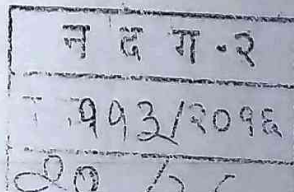 न द ग.२
११३/२०१६